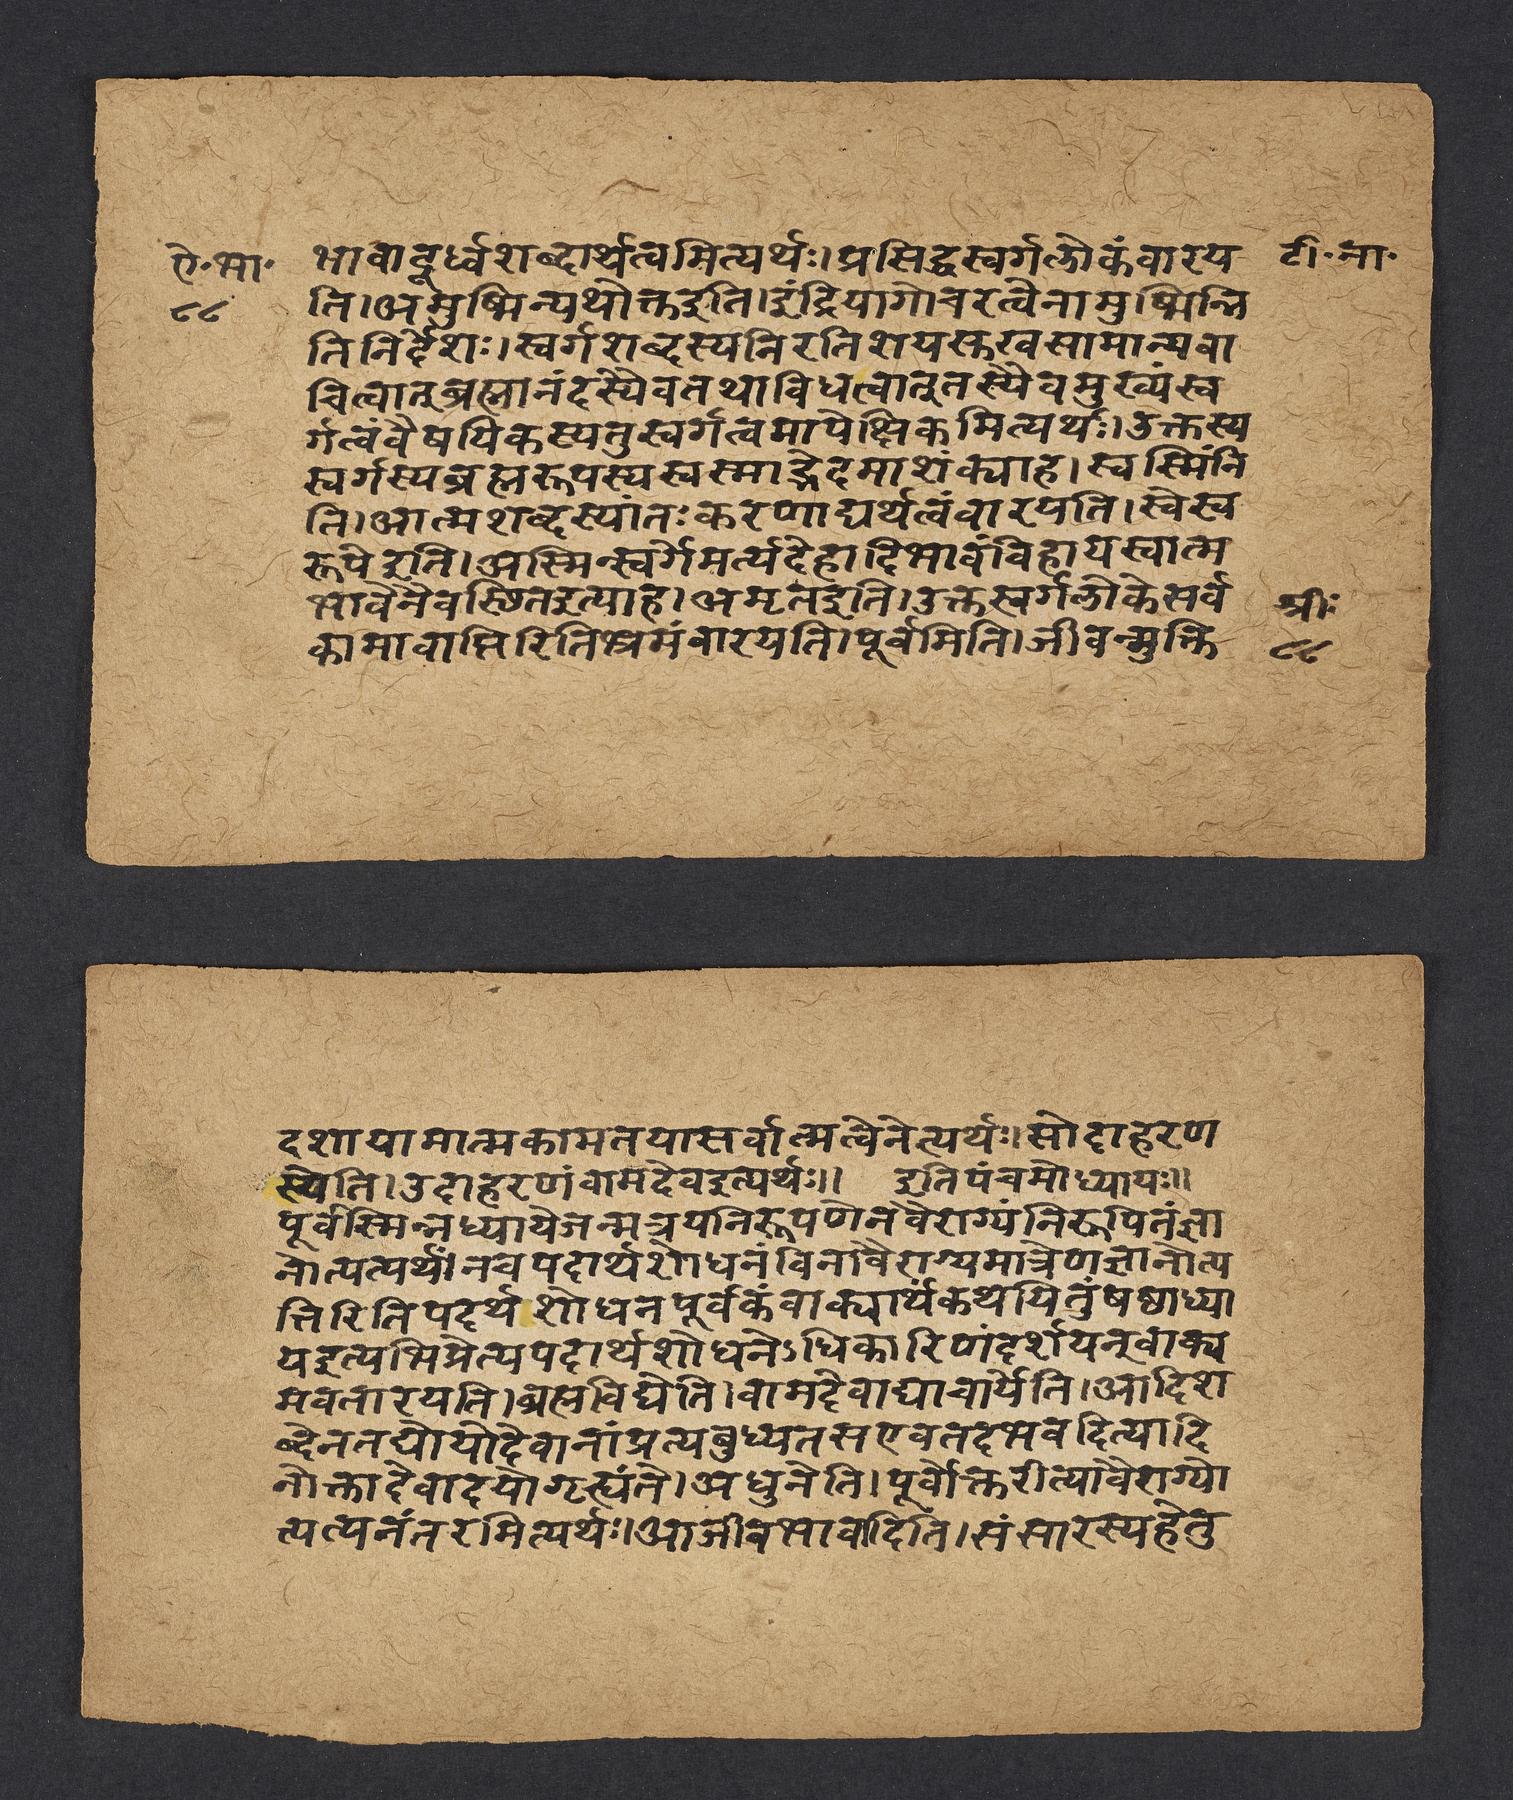 ऐ·भा·
८८
टी·ना·
भावादूर्ध्वशब्दार्थत्वमित्यर्थः।प्रसिद्धस्वर्गलोकंवारय
ति।अमुष्मिन्यथोक्तइति।इंद्रियागोचरत्वेनामुष्मिन्नि
तिनिर्देशः।स्वर्गशब्दस्यनिरतिशयसुखसामान्यवा
चित्वात्ब्रह्मानंदस्यैवतथाविधत्वात्तस्यैवमुख्यंस्व
र्गत्वंवैषयिकस्यतुस्वर्गत्वमापेक्षिकमित्यर्थः।उक्तस्य
स्वर्गस्यब्रह्मरूपस्यस्वस्माद्भेदमाशंक्याह।स्वस्मिंनि
ति।आत्मशब्दस्यांतःकरणाद्यर्थत्वंवारयति।स्वेस्व
रूपेइति।अस्मिन्स्वर्गेमर्त्यदेहादिभावंविहायस्वात्म
भावेनैवस्थितइत्याह।अमृतइति।उक्तस्वर्गलोकेसर्व
कामावाप्तिरितिभ्रमंवारयति।पूर्वमिति।जीवन्मुक्ति
श्रीः
८८
दशायामात्मकामतयासर्वात्मत्वेनेत्यर्थः।सोदाहरण
स्येति।उदाहरणंवामदेवइत्यर्थः।। इतिपंचमोध्यायः।।
पूर्वस्मिन्नध्यायेजन्मत्रयनिरूपणेनवैराग्यंनिरूपितंज्ञा
नोत्पत्यर्थं।नचपदार्थशोधनंविनावैराग्यमात्रेणज्ञानोत्प
त्तिरितिपदर्थशोधनपूर्वकंवाक्यार्थंकथयितुंषष्ठाध्या
यइत्यभिप्रेत्यपदार्थशोधनेऽधिकारिणंदर्शयन्वाक्य
मवतारयति।ब्रह्मविद्येति।वामदेवाद्याचार्येति।आदिश
ब्देनतद्योयोदेवानांप्रत्यबुध्यतसएवतदभवदित्यादि
नोक्तादेवादयोगृह्यंते।अधुनेति।पूर्वोक्तरीत्यावैराग्यो
त्पत्यनंतरमित्यर्थः।आजीवभावादिति।संसारस्यहेतु